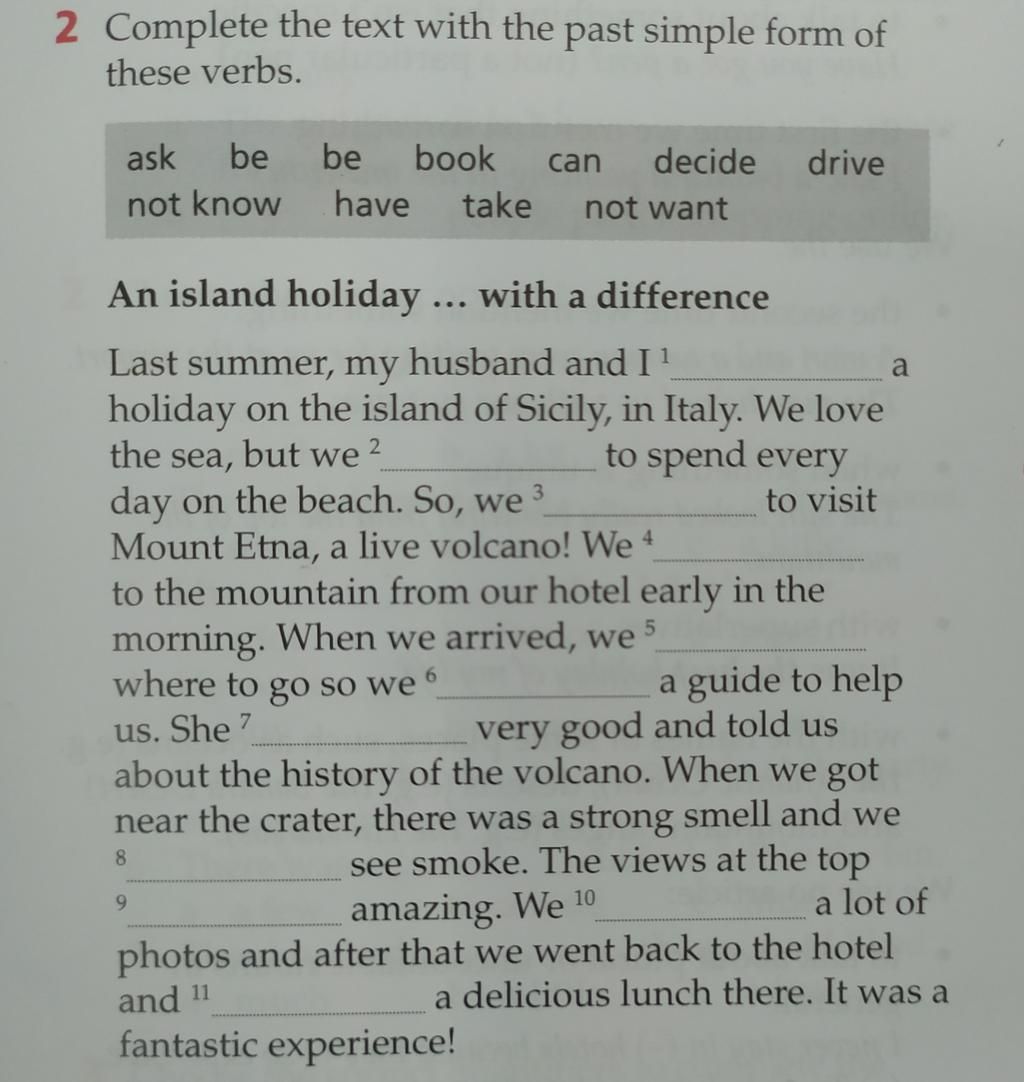 2 Complete the text with the past simple form of
these verbs.
ask be be book can decide drive
not know have take not want
An island holiday ... with a difference
Last summer, my husband and I 1 a
holiday on the island of Sicily, in Italy. We love
the sea, but we 2 to spend every
day on the beach. So, we 3 to visit
Mount Etna, a live volcano! We 4
to the mountain from our hotel early in the
morning. When we arrived, we 5
where to go so we 6 a guide to help
us. She 7 very good and told us
about the history of the volcano. When we got
near the crater, there was a strong smell and we
8 see smoke. The views at the top
9 amazing. We 10 a lot of
photos and after that we went back to the hotel
and 11 a delicious lunch there. It was a
fantastic experience!